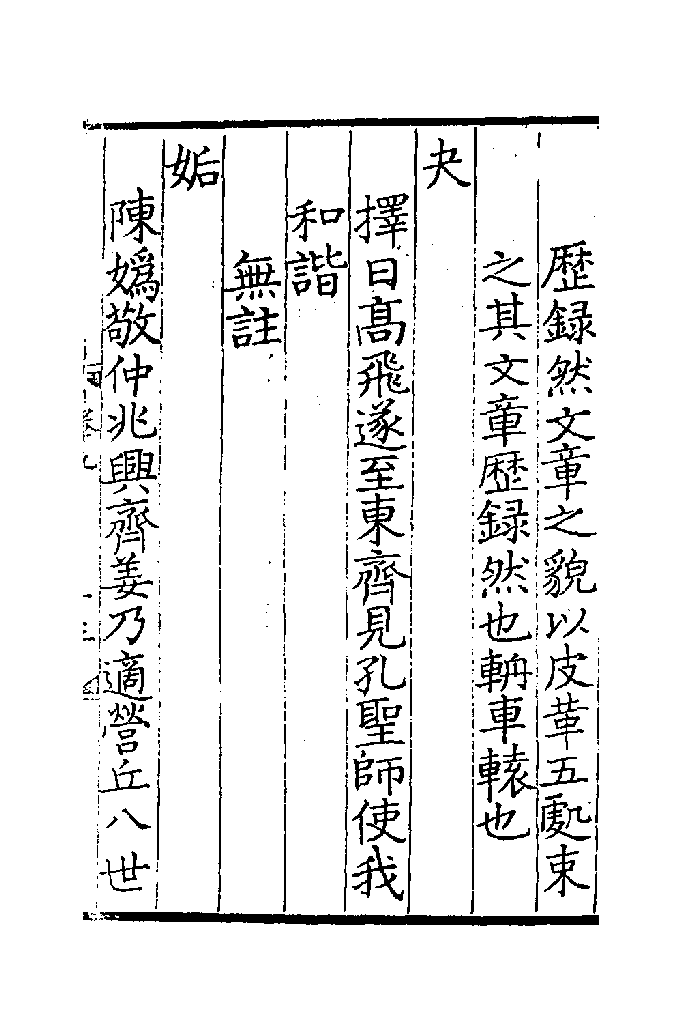 歴録然文章之貌以皮革五處束
之其文章歴録然也輈車轅也
夬
擇日髙飛遂至東齊見孔聖師使我
和諧
無註
姤
陳嬀敬仲兆興齊姜乃適營丘八世